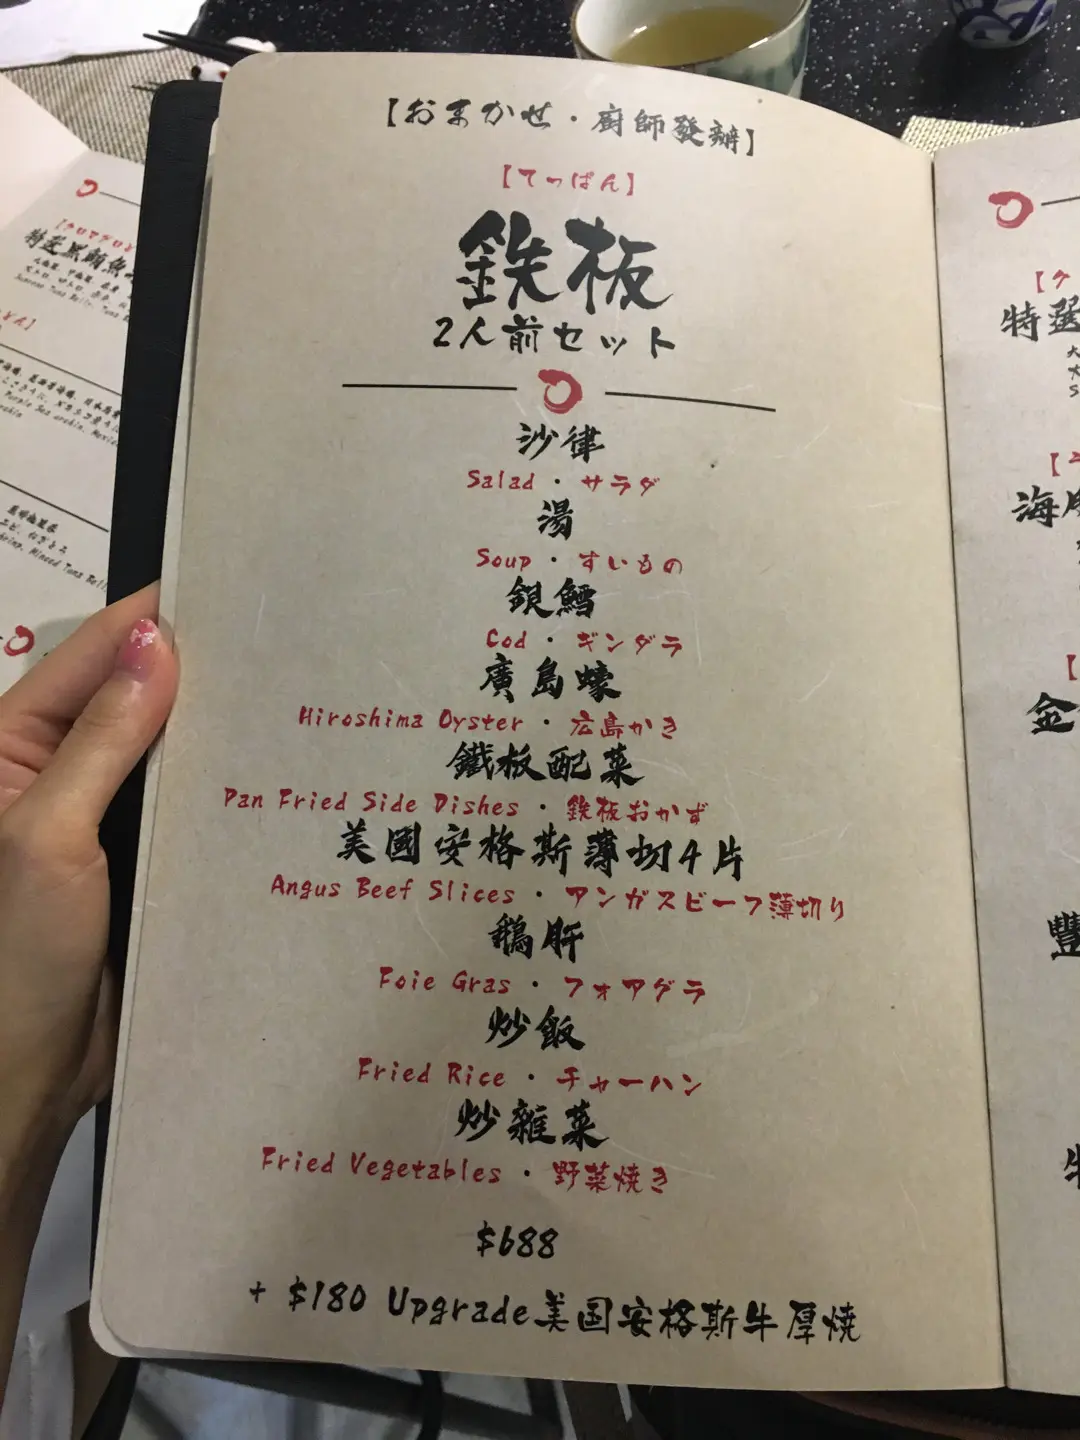 【おまかせ・廚師發辦】
【てっぱん】
鉄板
2人前セット
沙律
Salad・サラダ
湯
Soup・すいもの
銀鱈
Cod・ギンダラ
廣島蠔
Hiroshima Oyster・広島かき
鐵板配菜
Pan Fried Side Dishes・鉄板おかず
美國安格斯薄切4片
Angus Beef Slices・アンガスビーフ薄切り
鵝肝
Foie Gras・フォアグラ
炒飯
Fried Rice・チャーハン
炒雜菜
Fried Vegetables・野菜焼き
$688
+ $180 Upgrade美国安格斯牛厚燒
特選
海
金
豐